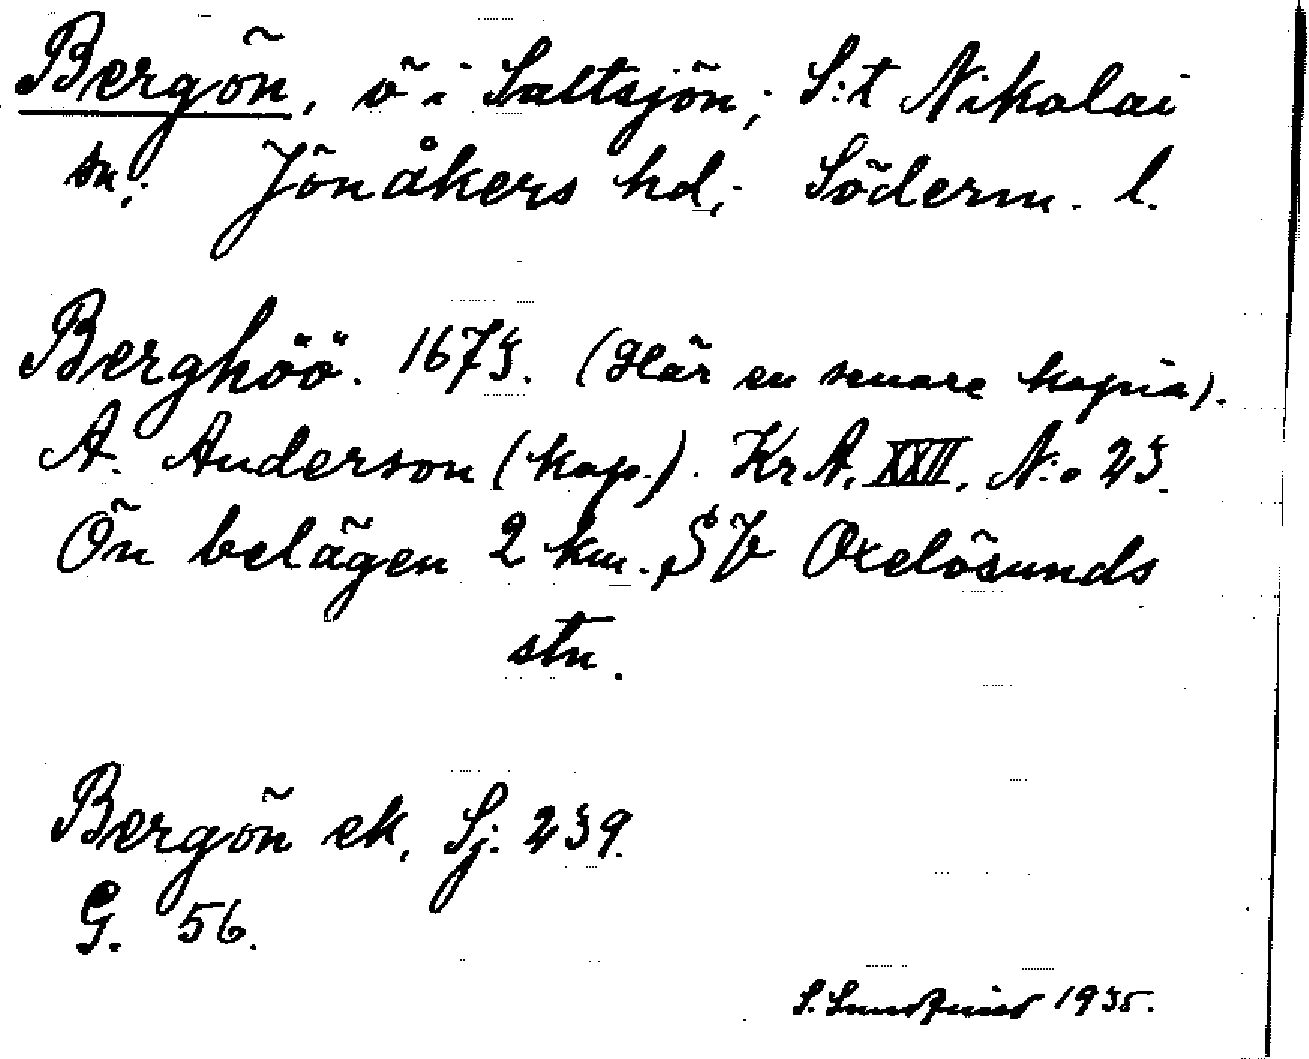 Bergön, ö i Saltsjön; S:t Nikolai
sn; Jönåkers hd; Söderm. l.
Berghöö. 1673. (Här en senare kopia).
A. Anderson (kop.). KrA. XXII. N:o 23.
Ön belägen 2 km. SV Oxelösunds
stn.
Bergön ek. Sj. 239.
G. 56.
S. 1935.